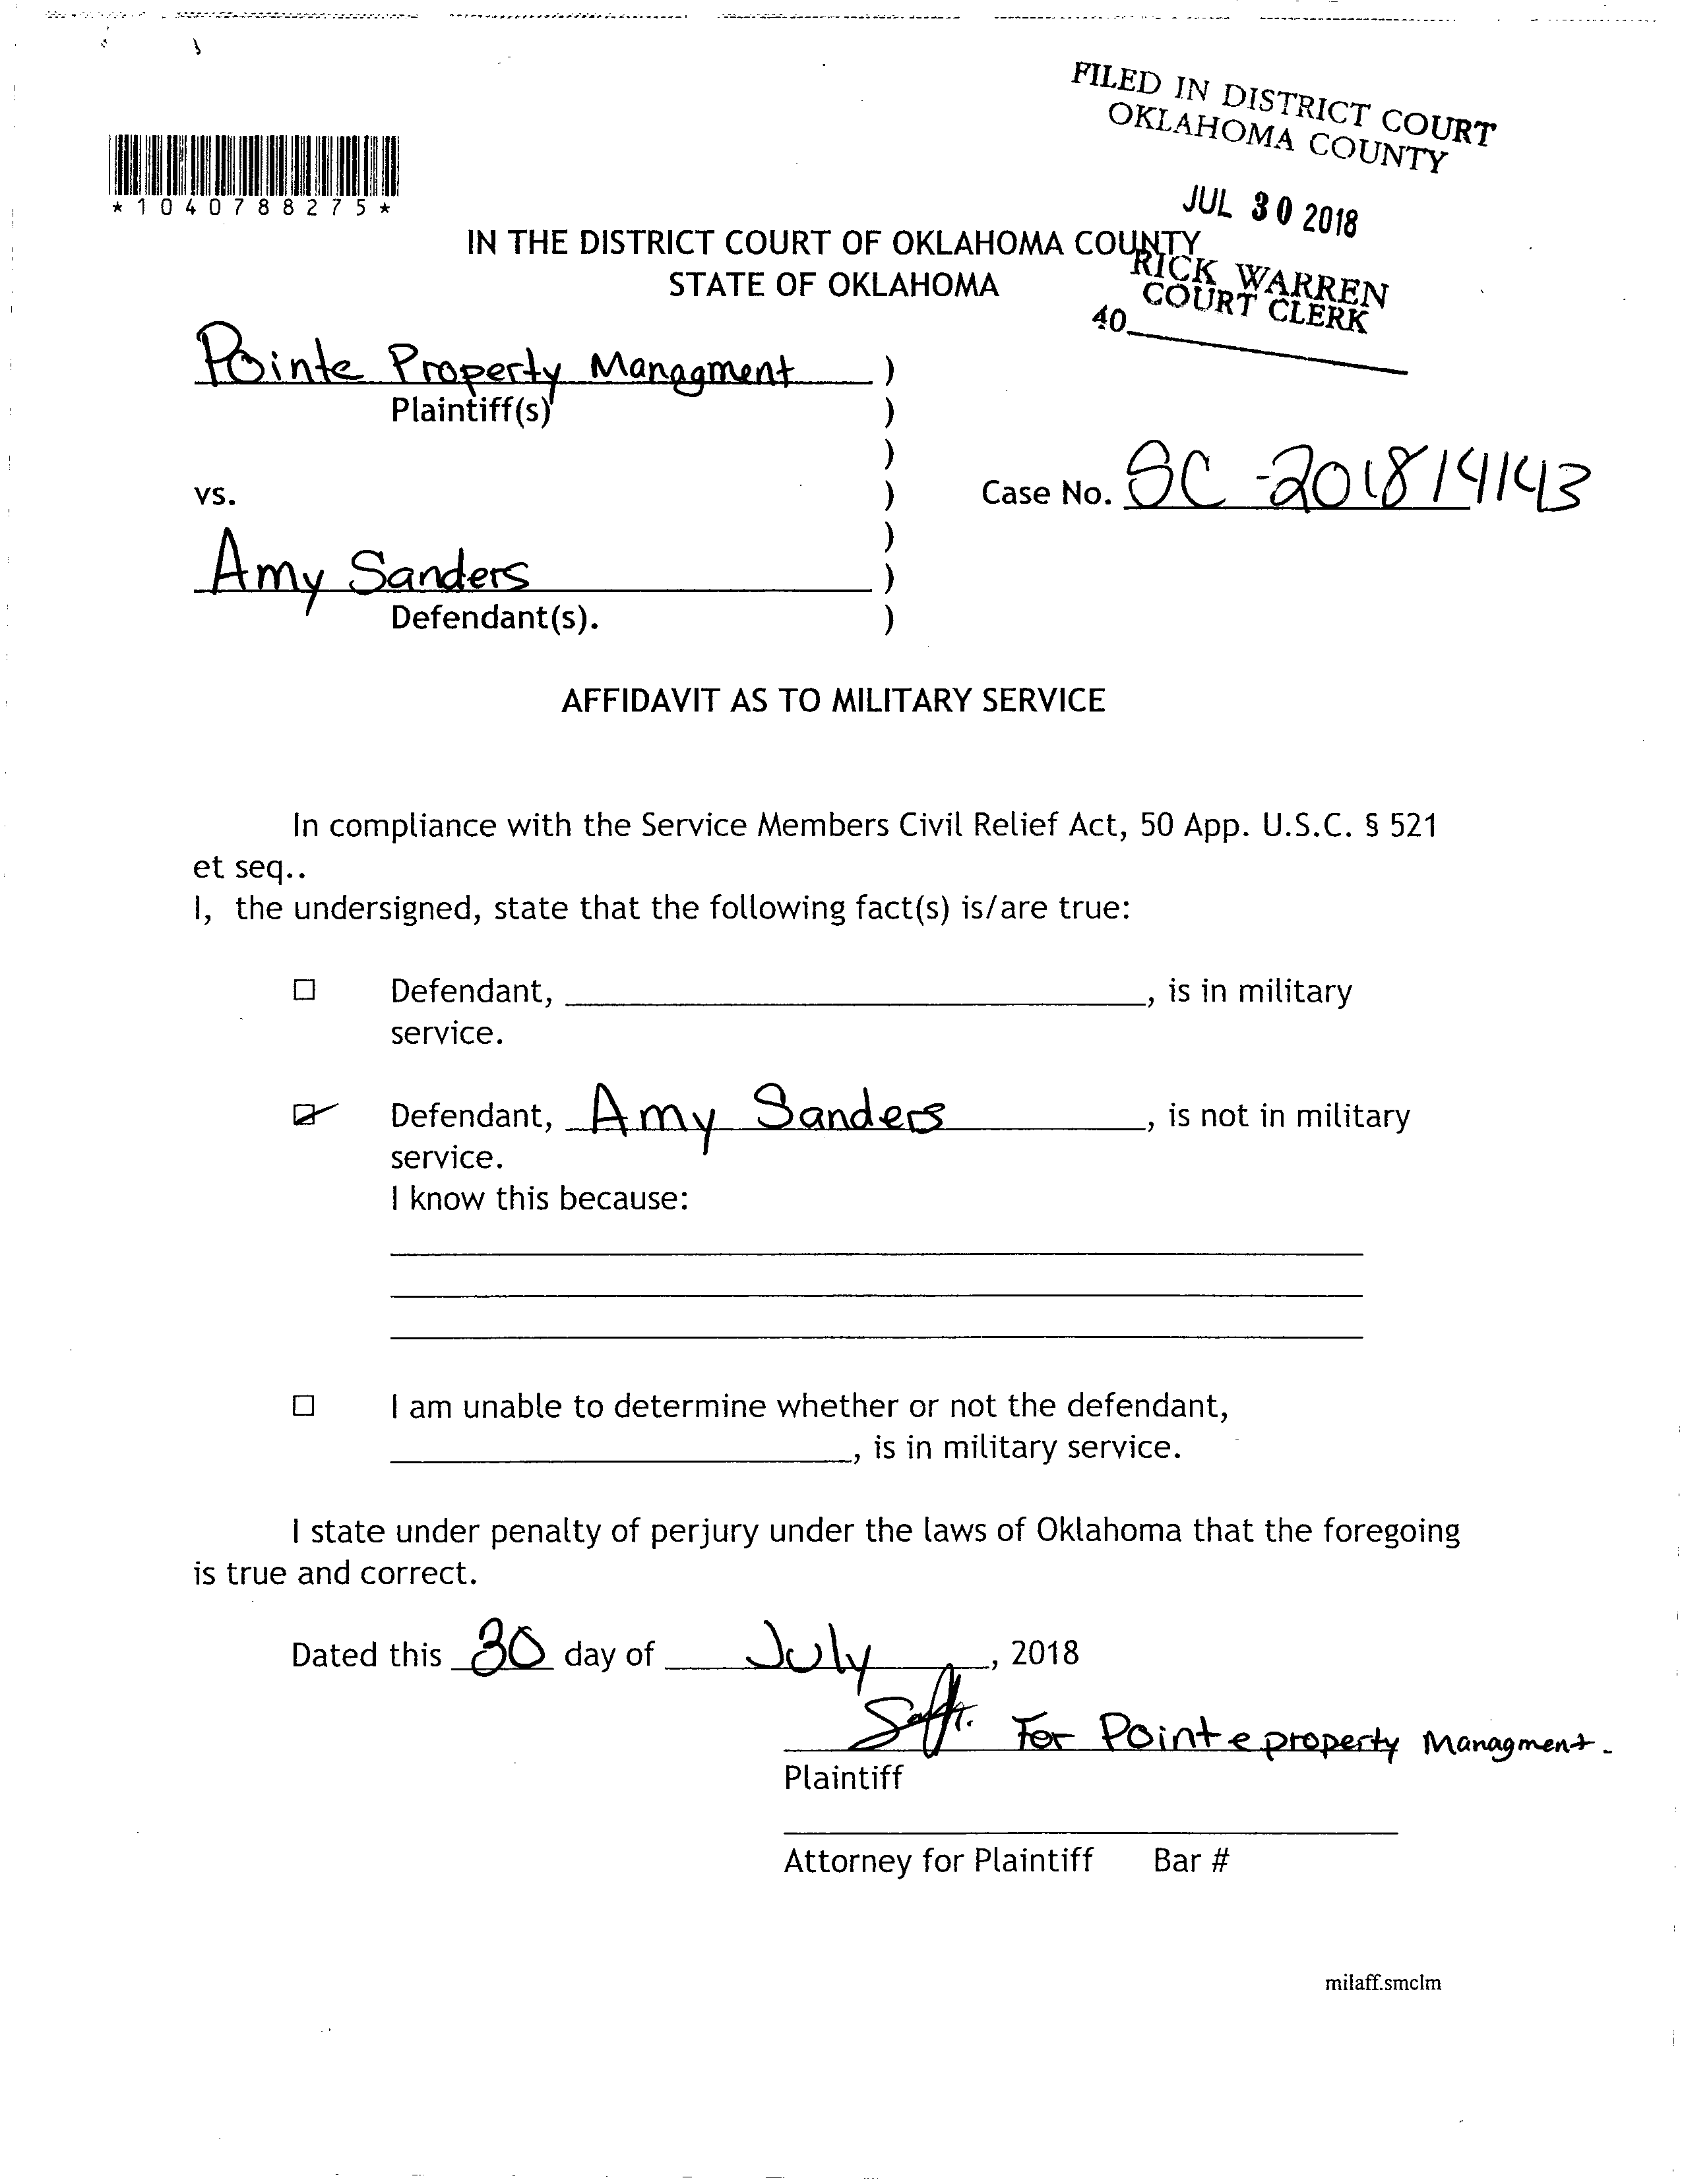 FILED IN DISTRICT COURT
OKLAHOMA COUNTY
JUL 30 2018
RICK WARREN
COURT CLERK
40
*1040788275*
IN THE DISTRICT COURT OF OKLAHOMA COUNTY
STATE OF OKLAHOMA
Pointe Property Managment )
Plaintiff(s) )
)
vs. ) Case No. SC-201814143
)
Amy Sanders )
Defendant(s). )
AFFIDAVIT AS TO MILITARY SERVICE
In compliance with the Service Members Civil Relief Act, 50 App. U.S.C. § 521
et seq..
I, the undersigned, state that the following fact(s) is/are true:
☐ Defendant, ____________, is in military
service.
☑ Defendant, Amy Sanders, is not in military
service.
I know this because:
☐ I am unable to determine whether or not the defendant,
____________, is in military service.
I state under penalty of perjury under the laws of Oklahoma that the foregoing
is true and correct.
Dated this 30 day of July, 2018
For Pointe property Managment.
Plaintiff
Attorney for Plaintiff Bar #
milaff.smclm